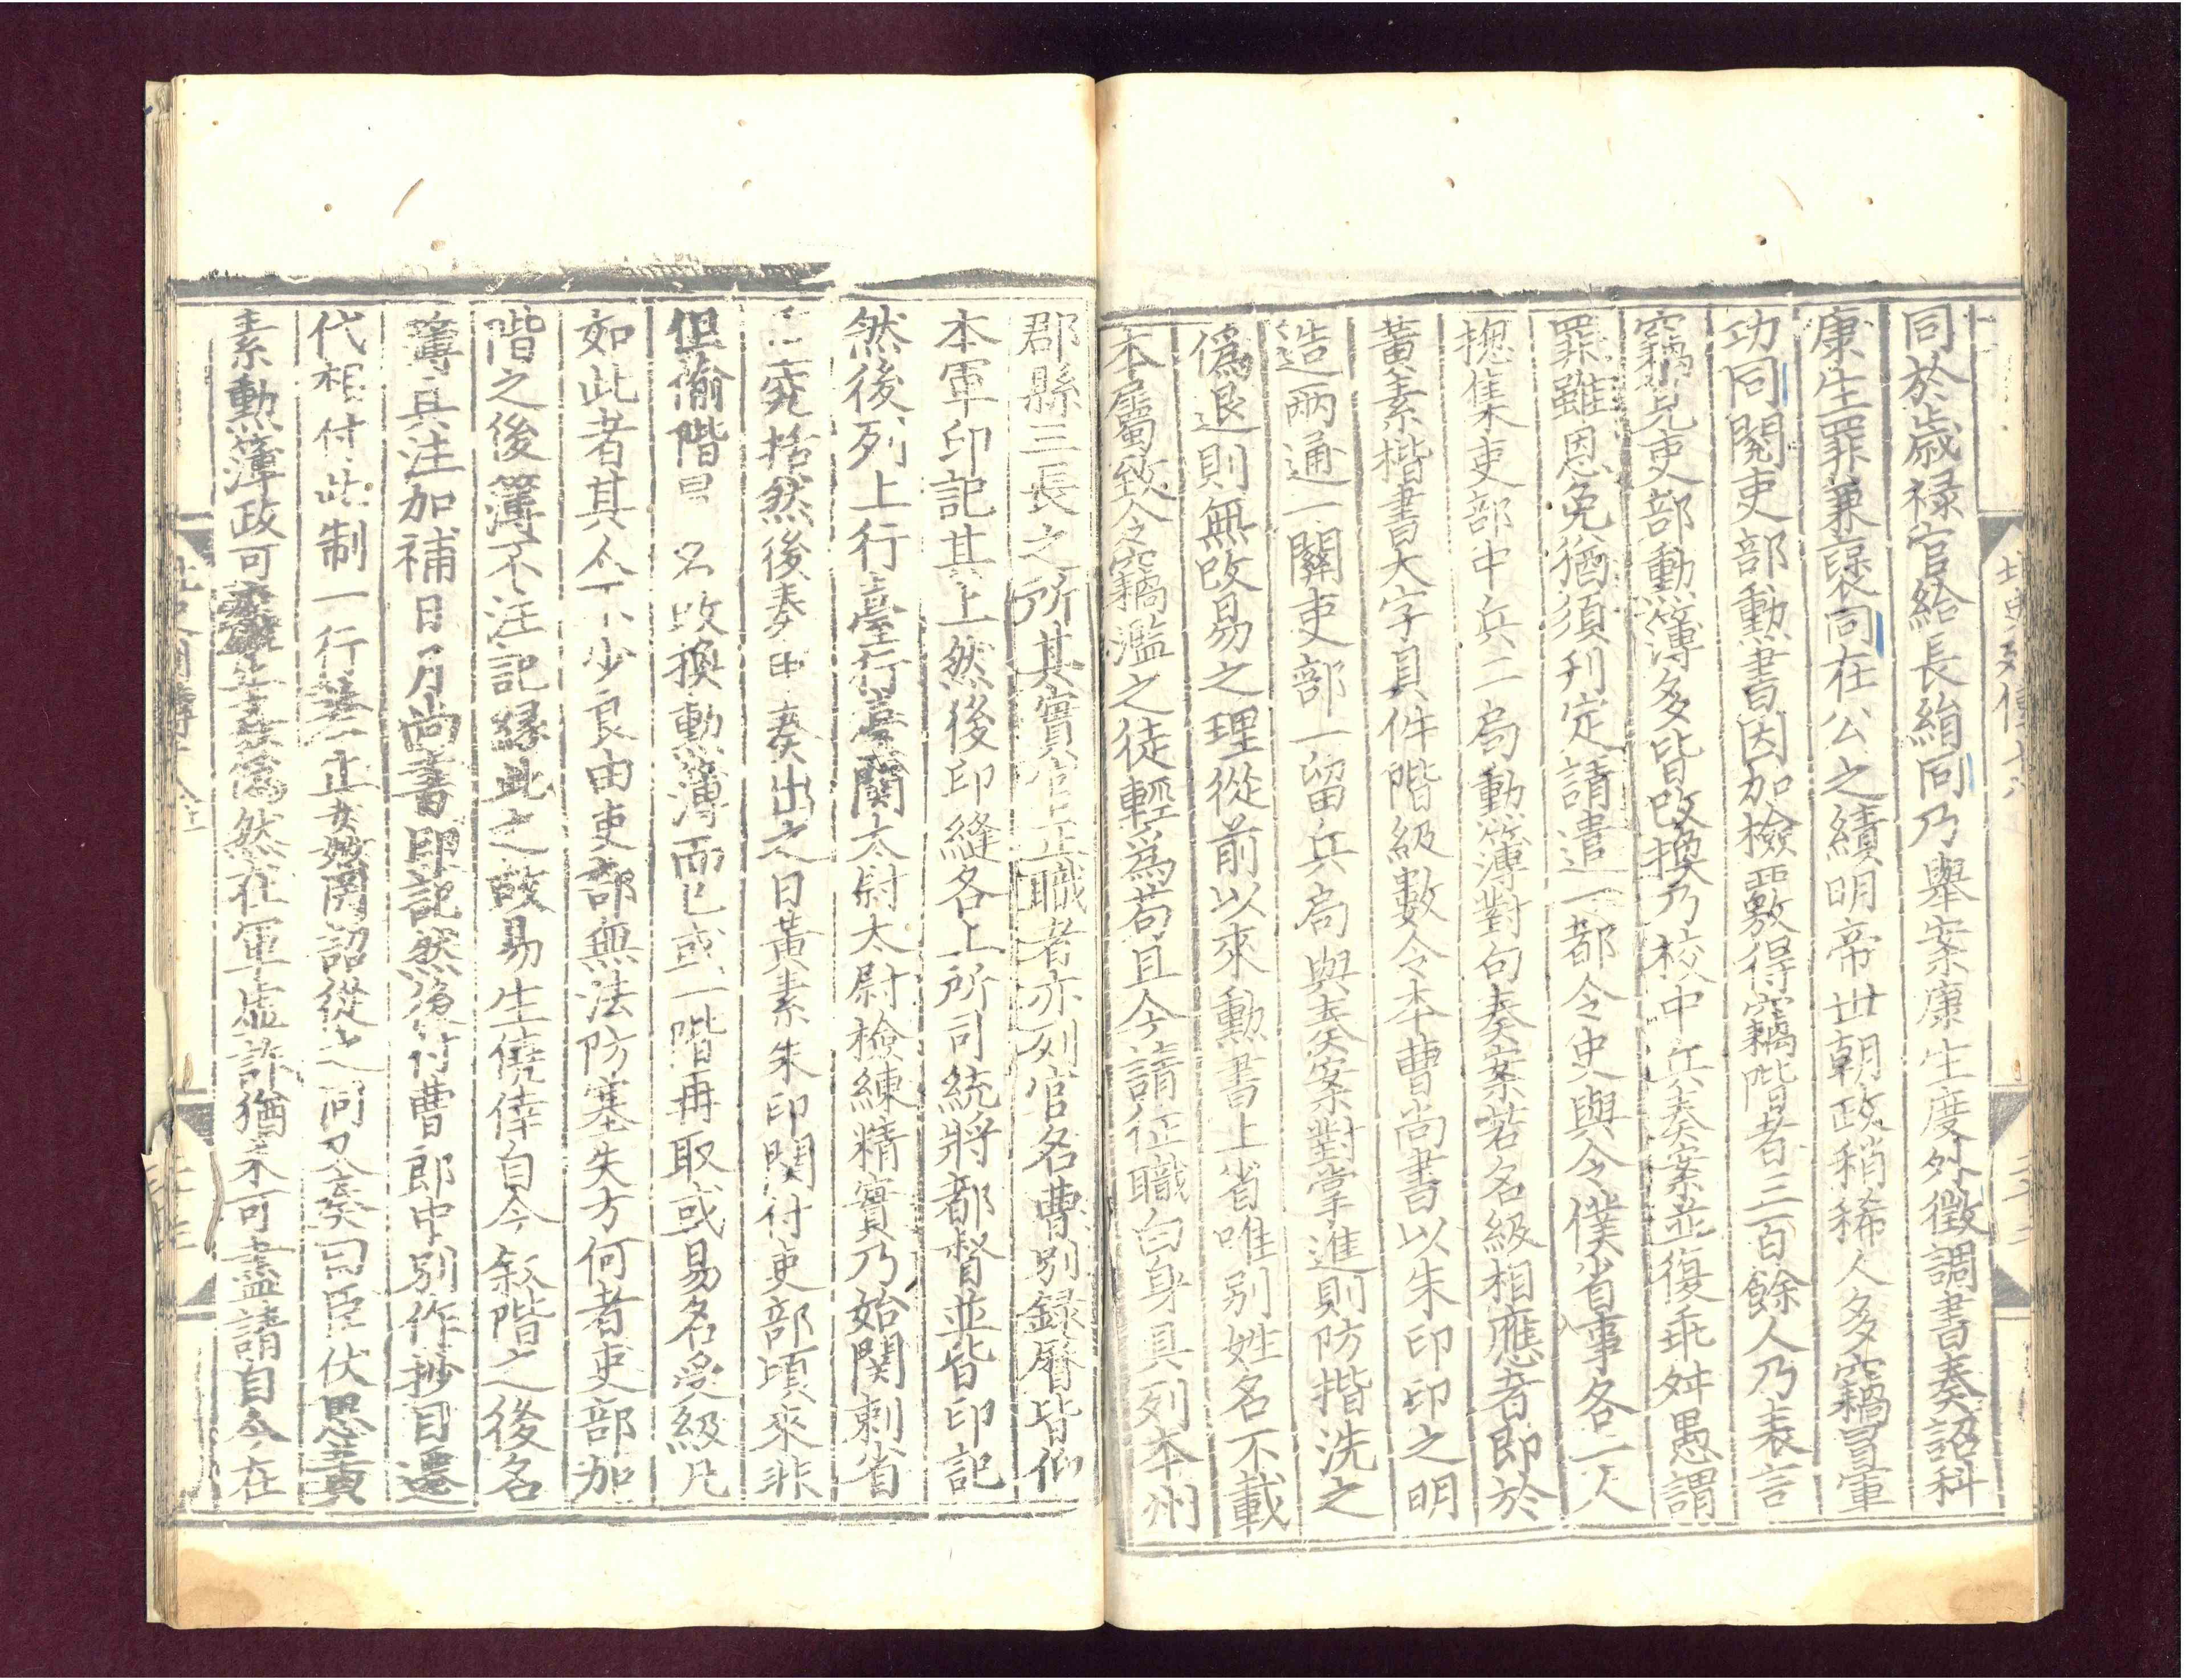 同於歳禄官給長絹同乃舉案康生度外徵調書奏詔科
康生罪兼襃同在公之績明帝世朝政稍稀人多竊冒軍
功同閱吏部勳書因加檢覈得竊階者三百餘人乃表言
竊見吏部勳簿多皆改換乃校中兵奏案並復乖舛愚謂
罪雖恩免猶須刋定請遣一都令史與令僕省事各一人
揔集吏部中兵二局勳簿對句奏案若名級相應者即於
黃素楷書大字具件階級數令本曹尚書以朱印印之明
造兩通一關吏部一留兵局與奏案對掌進則防揩洗之
僞退則無改易之理從前以來勳書上省唯列姓名不載
本屬致令竊濫之徒輕爲苟且今請征職白身具列本州
郡縣三長之所其實官正職者亦列官名曹別録曆皆仰
本軍印記其上然後印縫各上所司統將都督並皆印記
然後列上行臺行臺關太尉太尉檢練精實乃始関刺省
究括然後奏申奏出之日黃素朱印関付吏部頃來非
但偷階 名改換勳薄而已或一階再取或易名受級凡
如此者其人不少良由吏部無法防塞失方何者吏部加
階之後簿不注記緣此之故易生僥倖自今敘階之後名
簿具注加補日月尚書印記然後付曹郎中別作抄目遷
代相付此制一行差止姦罔詔從之同又奏曰臣伏思黃
素勳簿政可 僞然在軍虛詐猶未可盡請自今在
北史列傳十八